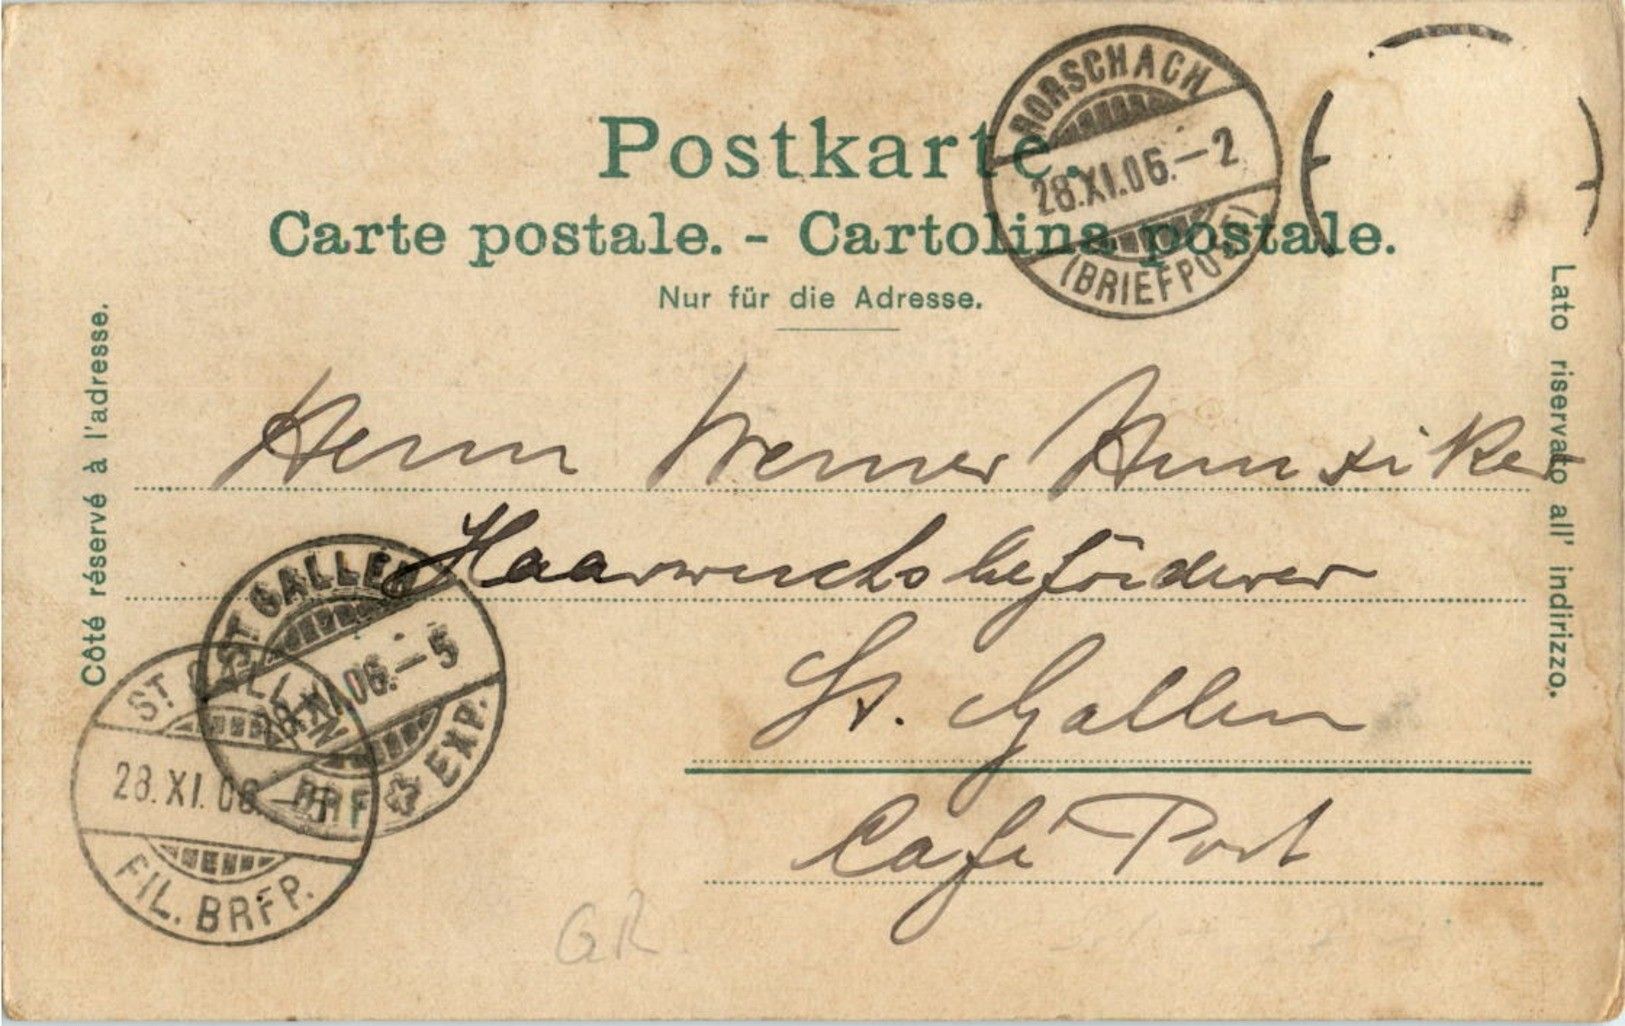 Postkarte.
Carte postale. - Cartolina postale.
Nur für die Adresse.
Côté réservé à l'adresse.
Lato riservato all' indirizzo.
RORSCHACH
28.XI.06.-2
(BRIEFPOST)
Herrn Werner Hunziker
Haarwuchsbeförderer
St. Gallen
Café Post
ST. GALLEN
28.XI.06.-5
BRF EXP.
ST. GALLEN
28.XI.06.
FIL. BRFP.
GR.